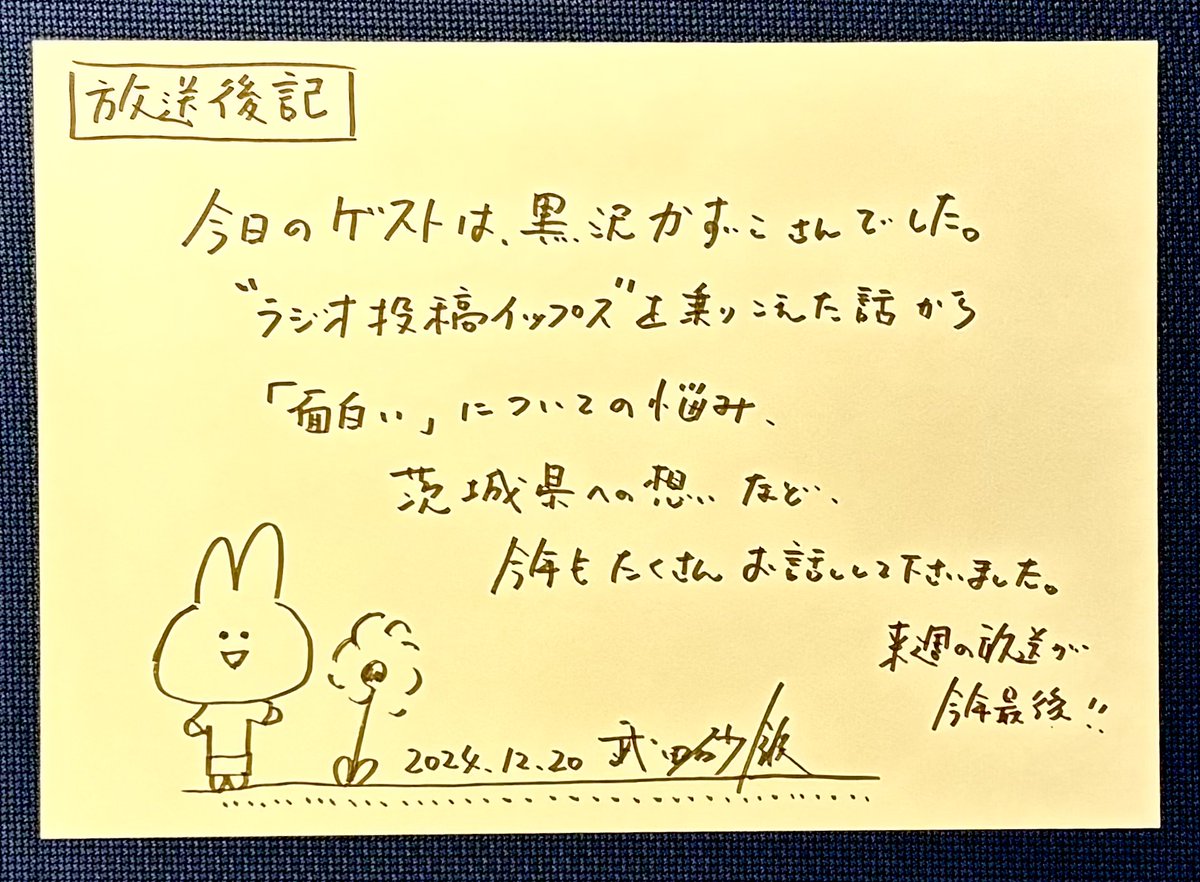 放送後記
今日のゲストは、黒沢かずこさんでした。
"ラジオ投稿イップス"を乗りこえた話から
「面白い」についての悩み、
茨城県への想いなど、
今年もたくさんお話しして下さいました。
来週の放送が
今年最後!!
2024.12.20 武田砂鉄